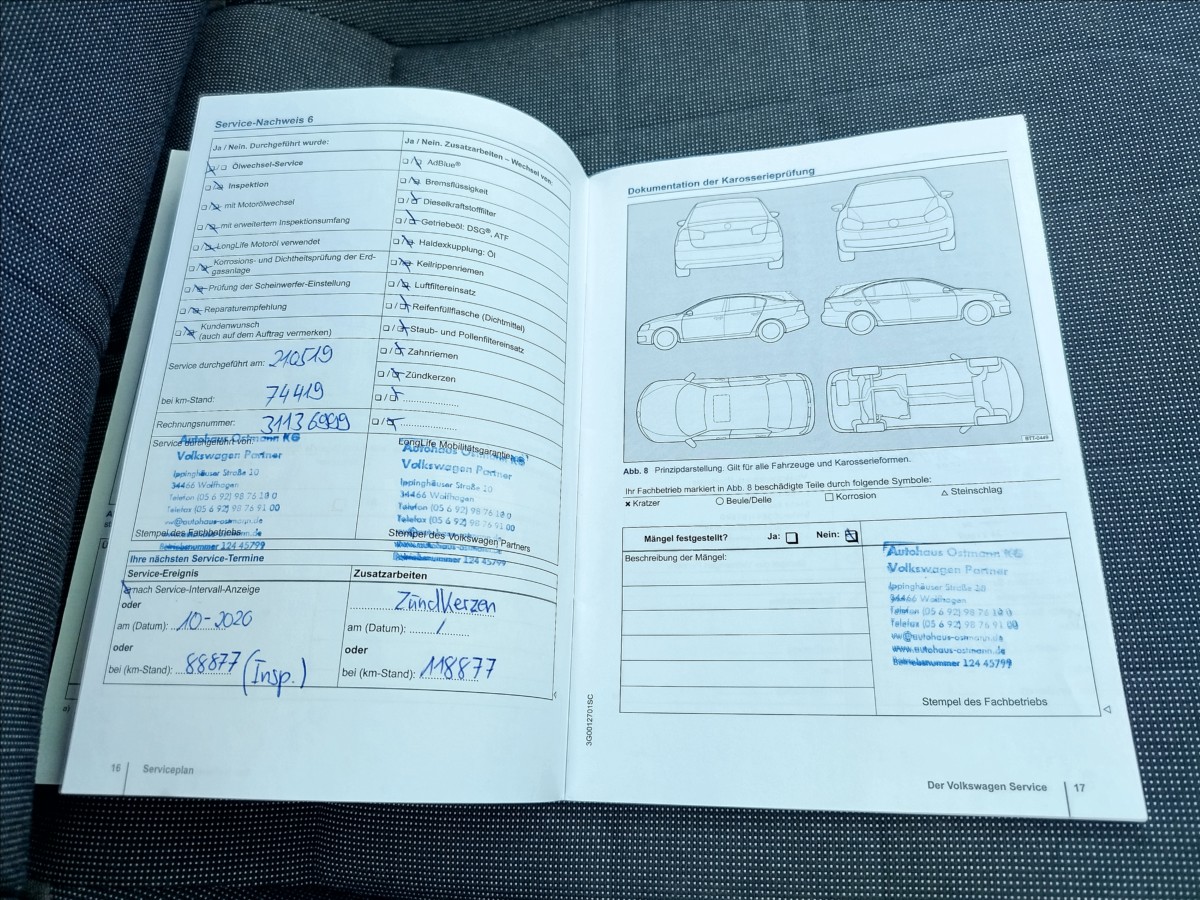 Service-Nachweis 6
Ja / Nein. Durchgeführt wurde:
Ölwechsel-Service
Inspektion
mit Motorölwechsel
mit erweitertem Inspektionsumfang
LongLife Motoröl verwendet
Korrosions- und Dichtheitsprüfung der Erd-
gasanlage
Prüfung der Scheinwerfer-Einstellung
Reparaturempfehlung
Kundenwunsch
(auch auf dem Auftrag vermerken)
Service durchgeführt am: 210519
bei km-Stand: 74419
Rechnungsnummer: 31136999
Service durchgeführt von:
Autohaus Ostmann KG
Volkswagen Partner
Ippinghäuser Straße 20
34466 Wolfhagen
Telefon (05 6 92) 98 76 10 0
Telefax (05 6 92) 98 76 91 00
vw@autohaus-ostmann.de
www.autohaus-ostmann.de
Betriebsnummer 124 45799
Stempel des Fachbetriebs
Ja / Nein. Zusatzarbeiten – Wechsel von:
AdBlue®
Bremsflüssigkeit
Dieselkraftstofffilter
Getriebeöl: DSG®, ATF
Haldexkupplung: Öl
Keilrippenriemen
Luftfiltereinsatz
Reifenfüllflasche (Dichtmittel)
Staub- und Pollenfiltereinsatz
Zahnriemen
Zündkerzen
LongLife Mobilitätsgarantie
Autohaus Ostmann KG
Volkswagen Partner
Ippinghäuser Straße 20
34466 Wolfhagen
Telefon (05 6 92) 98 76 10 0
Telefax (05 6 92) 98 76 91 00
vw@autohaus-ostmann.de
www.autohaus-ostmann.de
Betriebsnummer 124 45799
Stempel des Volkswagen Partners
Ihre nächsten Service-Termine
Service-Ereignis
nach Service-Intervall-Anzeige
oder
am (Datum): 10-2020
oder
bei (km-Stand): 88877 (Insp.)
Zusatzarbeiten
Zündkerzen
am (Datum): /
oder
bei (km-Stand): 118877
16 Serviceplan
3G0012701SC
Dokumentation der Karosserieprüfung
BTT-0449
Abb. 8 Prinzipdarstellung. Gilt für alle Fahrzeuge und Karosserieformen.
Ihr Fachbetrieb markiert in Abb. 8 beschädigte Teile durch folgende Symbole:
× Kratzer ○ Beule/Delle □ Korrosion △ Steinschlag
Mängel festgestellt? Ja: Nein:
Beschreibung der Mängel:
Autohaus Ostmann KG
Volkswagen Partner
Ippinghäuser Straße 20
34466 Wolfhagen
Telefon (05 6 92) 98 76 10 0
Telefax (05 6 92) 98 76 91 00
vw@autohaus-ostmann.de
www.autohaus-ostmann.de
Betriebsnummer 124 45799
Stempel des Fachbetriebs
Der Volkswagen Service 17